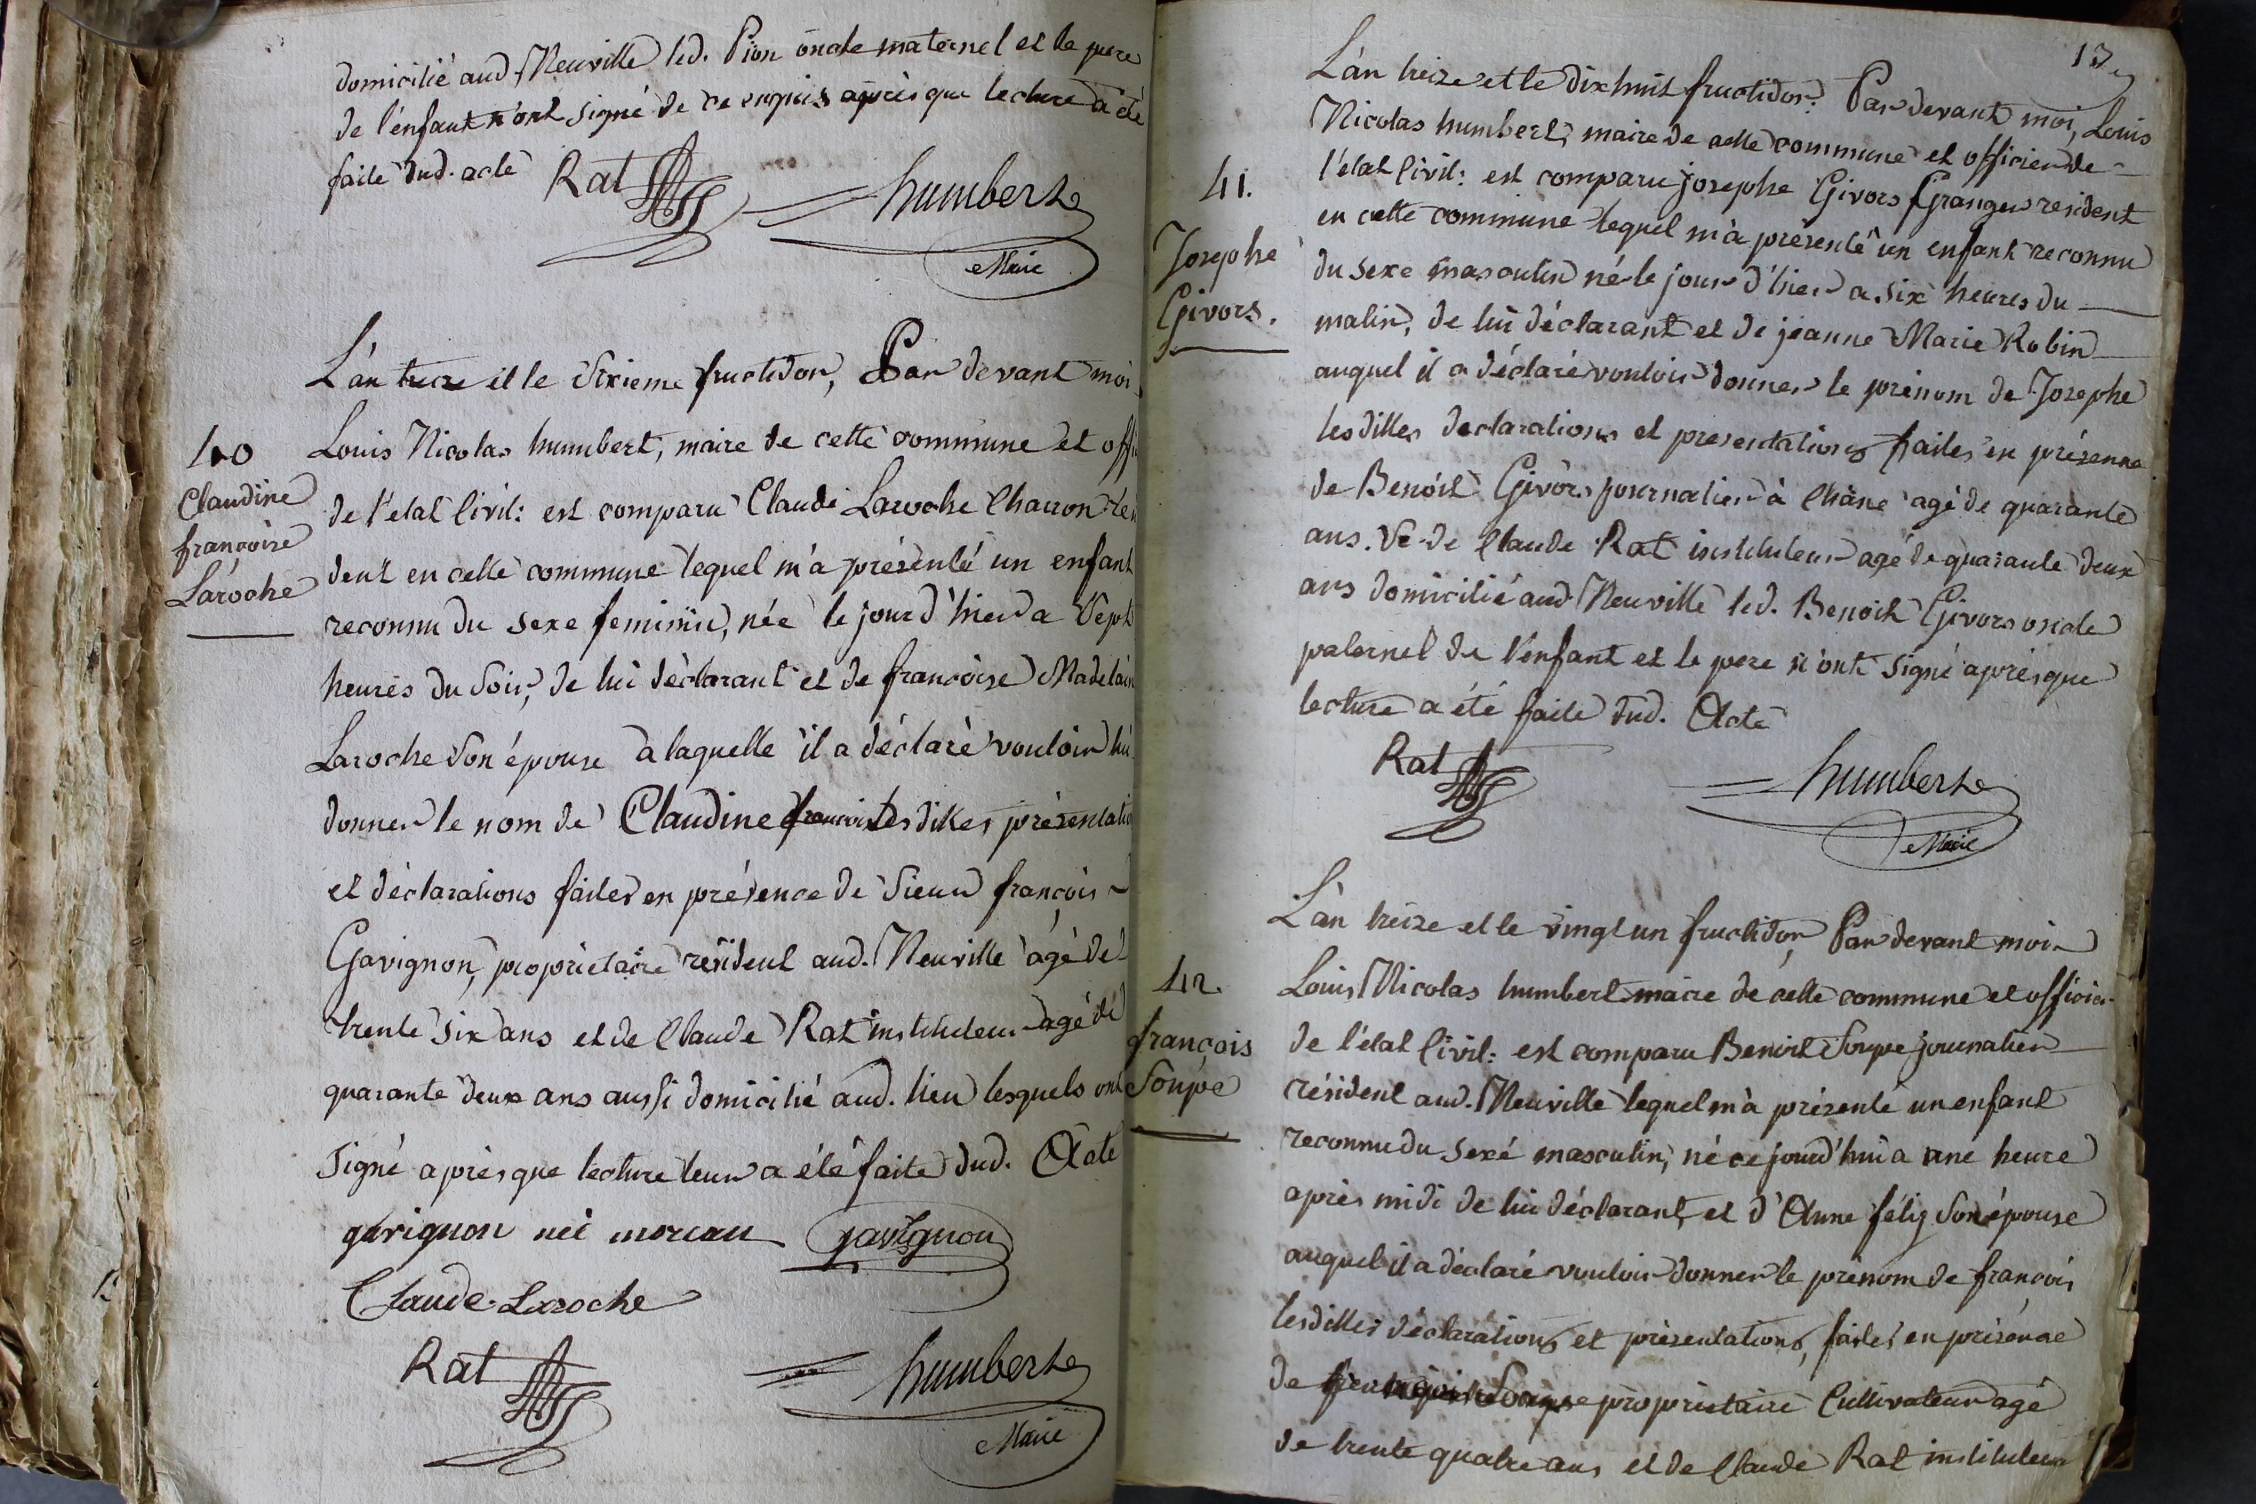 domicilié aud. Neuville led. Pion oncle maternel et le pere
de l'énfant n'ont signé de ce enquis après que lecture a été
faite dud. acte Rat humbert
Maire
L'an treize et le Sixieme fructidor, Par devant moi
40
Claudine
françoise
Laroche
Louis Nicolas humbert, maire de cette commune et offi
de l'état Civil: est comparu Claude Laroche Charron rési
dent en cette commune lequel m'a présenté un enfant
reconnu du sexe feminin, née le jour d'hier a Sept
heures du Soir, de lui déclarant et de françoise Madelain
Laroche Son épouse a laquelle il a déclaré vouloir lui
donner le nom de Claudine françoise Lesdites présentatio
et déclarations faites en présence de Sieur françois
Gavignon, propriétaire résident aud. Neuville agé de
trente Six ans et de Claude Rat instituteur agé de
quarante deux ans aussi domicilié aud. lieu lesquels ont
Signé après que lecture leur a été faite dud. Acte
gavignon née moreau gavignon
Claude Laroche
Rat humbert
Maire
13
L'an treize et le dix huit fructidor. Par devant moi, Louis
41.
Josephe
Givors.
Nicolas humbert, maire de cette commune et officier de
l'état Civil: est comparu josephe Givors Granger resident
en cette commune lequel m'a présenté un enfant reconnu
du sexe masculin né le jour d'hier a six heures du
matin, de lui déclarant et de jeanne Marie Robin
auquel il a déclaré vouloir donner le prénom de Josephe
lesdittes declarations et presentations faites en présence
de Benoit Givors journalier à Chane agé de quarante
ans. Et de Claude Rat instituteur agé de quarante deux
ans domicilié aud. Neuville led. Benoit Givors oncle
paternel de l'enfant et le pere n'ont signé après que
lecture a été faite dud. Acte
Rat humbert
Maire
L'an treize et le vingt un fructidor, Par devant moi
42.
françois
Soupe
Louis Nicolas humbert maire de cette commune et officier
de l'état Civil: est comparu Benoit Soupe journalier
résident aud. Neuville lequel m'a présenté un enfant
reconnu du sexé masculin, né ce jourd'hui a une heure
après midi de lui déclarant, et d'Anne félix Son épouse
auquel il a déclaré vouloir donner le prénom de françois
lesdittes déclarations et présentations, faites en présence
de Soupe propriétaire Cultivateur agé
de trente quatre ans et de Claude Rat instituteur